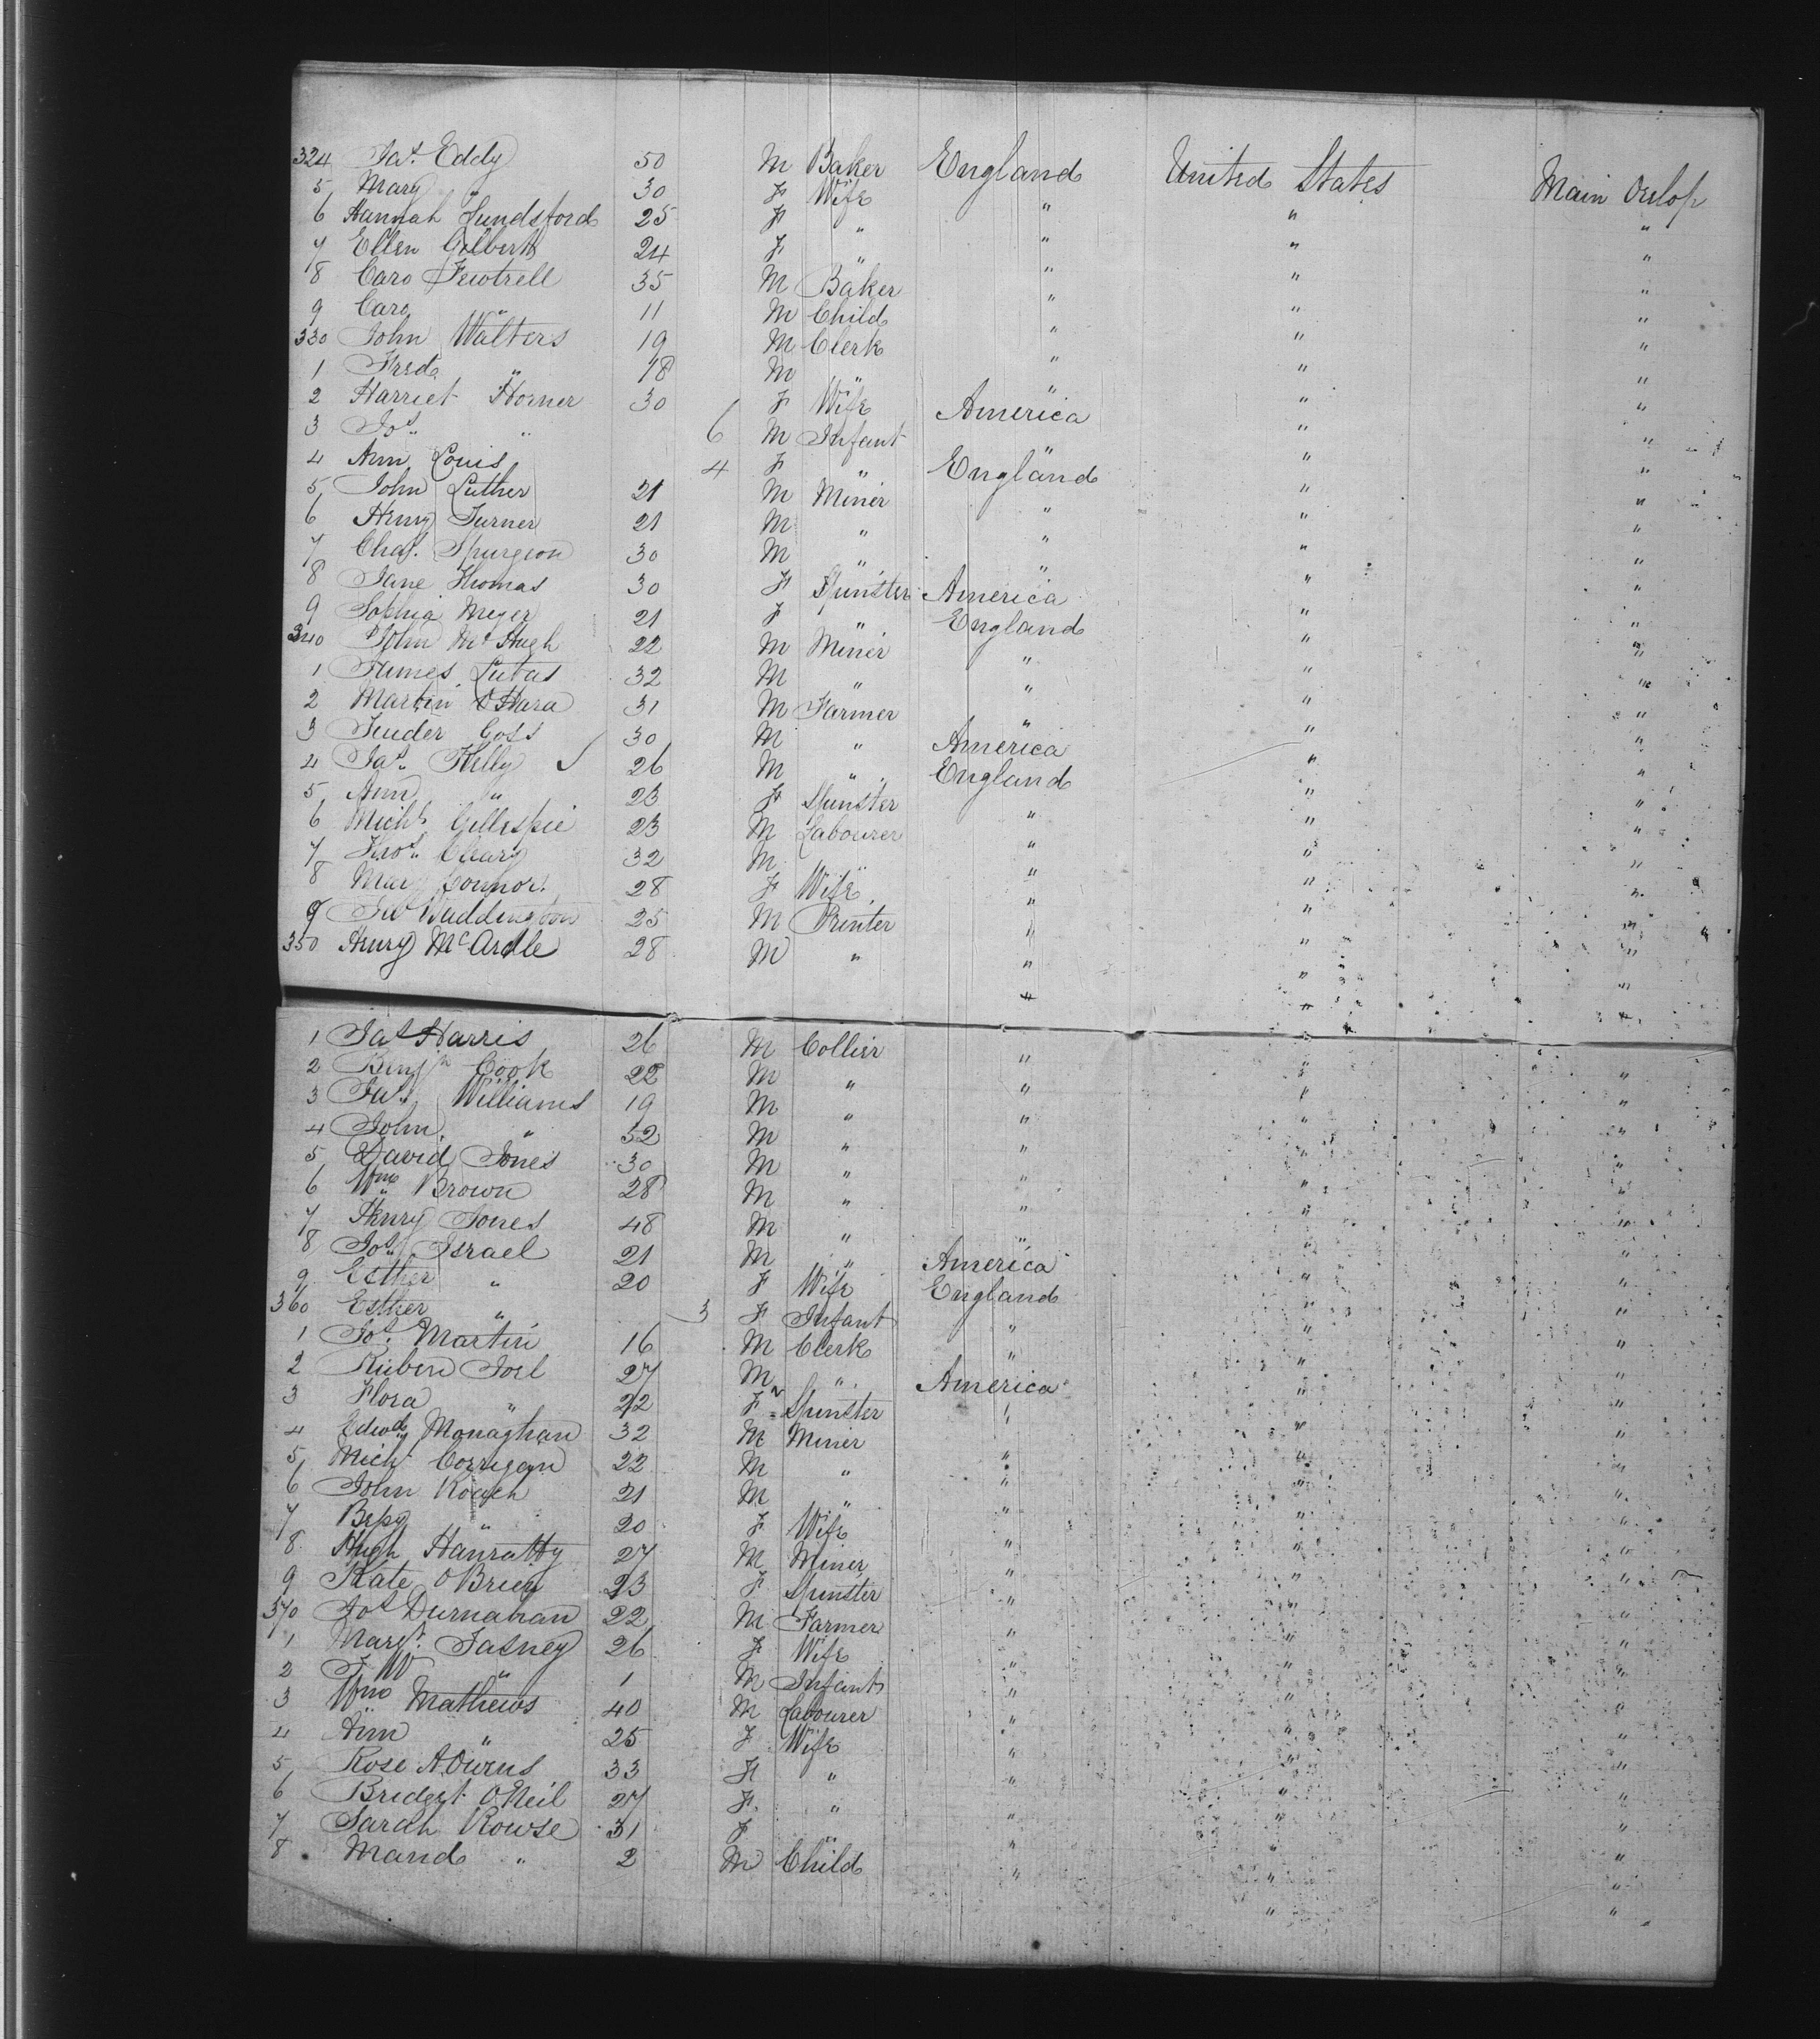 324 Jas. Eddy 50 M Baker England United States Main Orlop
5 Mary " 30 F Wife " " "
6 Hannah Lundsford 25 F " " " "
7 Ellen Gilbert 24 F " " " "
8 Caro Fewtrell 35 M Baker " " "
9 Caro " 11 M Child " " "
330 John Walters 19 M Clerk " " "
1 Fred " 18 M " " " "
2 Harriet Horner 30 F Wife America " "
3 Jos. " 6 M Infant " " "
4 Ann Louis 4 F " England " "
5 John Luther 21 M Miner " " "
6 Henry Turner 21 M " " " "
7 Chas. Spurgeon 30 M " " " "
8 Jane Thomas 30 F Spinster America " "
9 Sophia Meyer 21 F " England " "
340 John Mc Hugh 22 M Miner " " "
1 James 32 M " " " "
2 Martin O'Hara 31 M Farmer " " "
3 Goss 30 M " America " "
4 Jas. Kelly 26 M " England " "
5 Ann " 23 F Spinster " " "
6 Michl Gillespie 23 M Labourer " " "
7 Thos. Cleary 32 M " " " "
8 Mary Connor 28 F Wife " " "
9 Waddington 25 M Printer " " "
350 Henry McArdle 28 M " " " "
1 Jas Harris 26 M Collier " " "
2 Benjn Cook 22 M " " " "
3 Williams 19 M " " " "
4 John " 52 M " " " "
5 David Jones 30 M " " " "
6 Wm Brown 28 M " " " "
7 Henry Jones 48 M " " " "
8 Jos. Israel 21 M " America " "
9 Esther " 20 F Wife England " "
360 Esther " 3 F Infant " " "
1 Jos. Martin 16 M Clerk " " "
2 Ruben Joel 27 M " America " "
3 Flora " 22 F Spinster " " "
4 Edwd Monaghan 32 M Miner " " "
5 Michl Corrigan 22 M " " " "
6 John Roach 21 M " " " "
7 Bessy " 20 F Wife " " "
8 Hugh Hanratty 27 M Miner " " "
9 Kate O'Brien 23 F Spinster " " "
370 Jos Durnahan 22 M Farmer " " "
1 Margt. Tasney 26 F Wife " " "
2 " 1 M Infant " " "
3 Wm Mathews 40 M Labourer " " "
4 Ann " 25 F Wife " " "
5 Rose A. Owens 33 F " " " "
6 Bridget O'Neil 27 F " " " "
7 Sarah Rowse 31 F " " " "
8 Maud " 2 M Child " " "